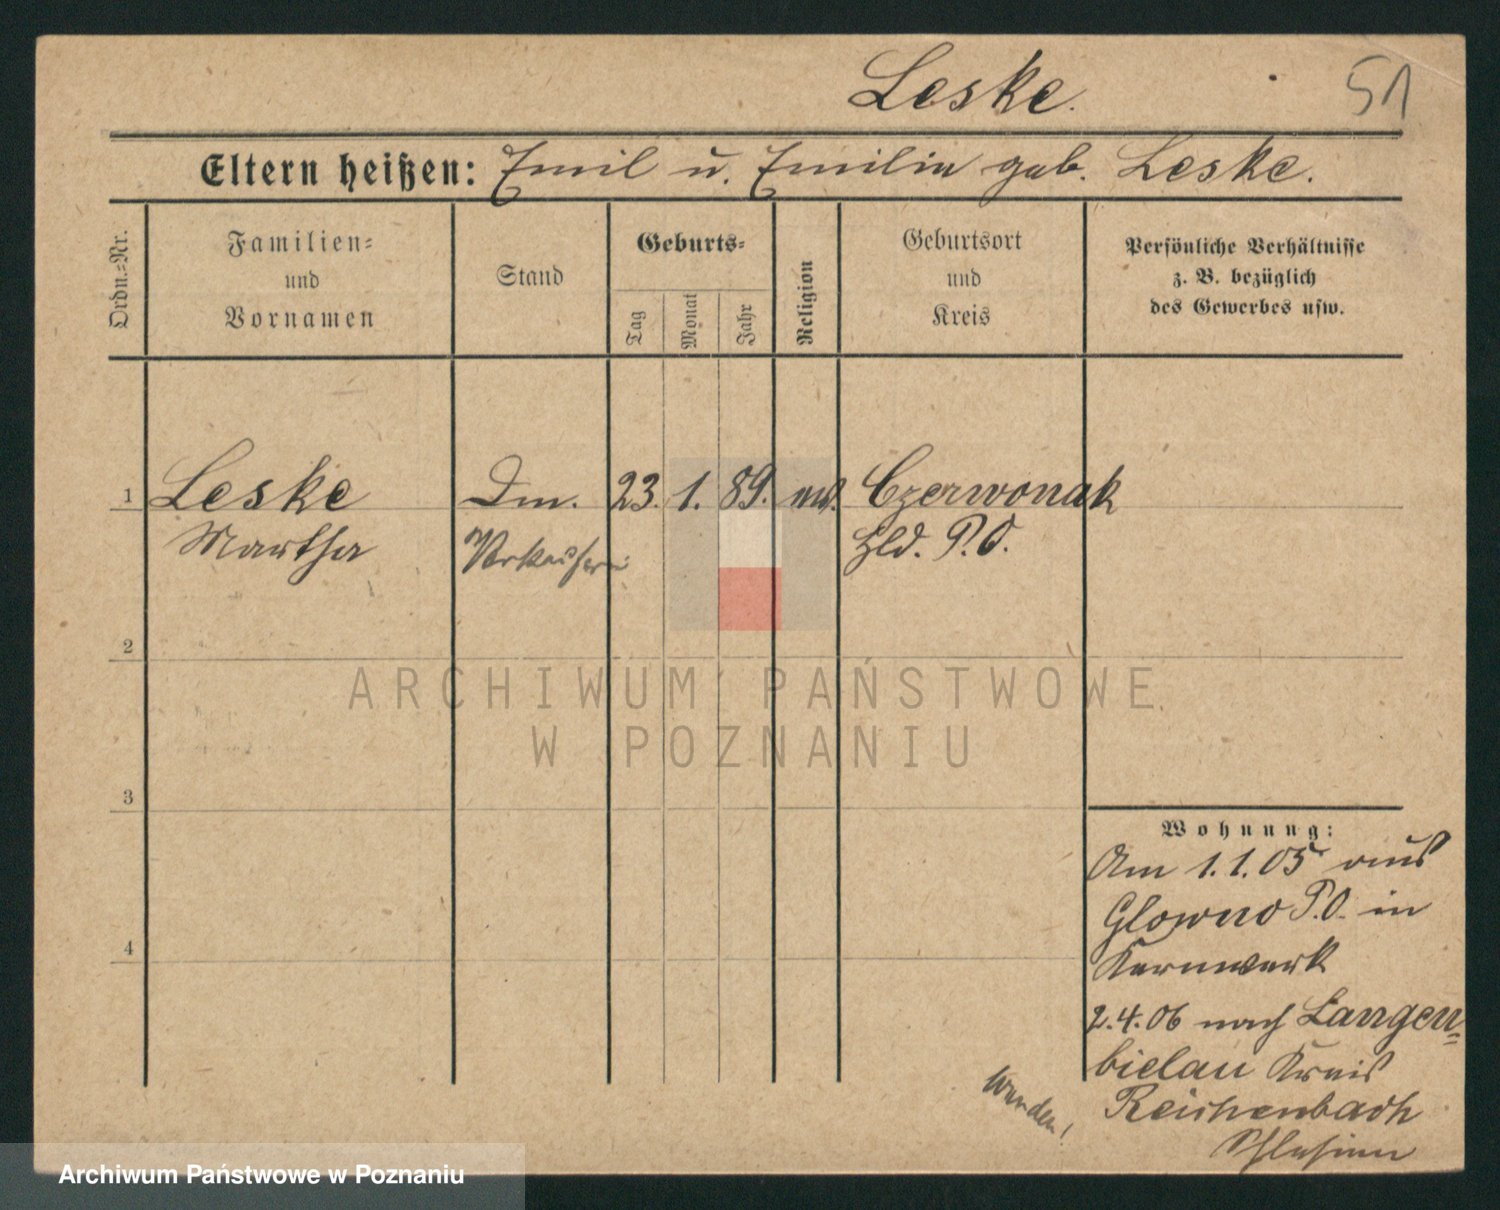 Leske.
51
Eltern heißen: Emil u. Emilie geb. Leske.
Ordn.-Nr.
Familien-
und
Vornamen
Stand
Geburts-
Tag
Monat
Jahr
Religion
Geburtsort
und
Kreis
Persönliche Verhältnisse
z. B. bezüglich
des Gewerbes usw.
1 Leske 23. 1. 89. ev. Czerwonak
Martha Verkäuferin Hld. P.O.
2
ARCHIWUM PAŃSTWOWE
W POZNANIU
3
Wohnung:
Am 1.1.05 aus
Glowno P.O. in
Kernwerk
2.4.06 nach Langen-
bielau Kreis
Reichenbach
Schlesien
4
wenden!
Archiwum Państwowe w Poznaniu